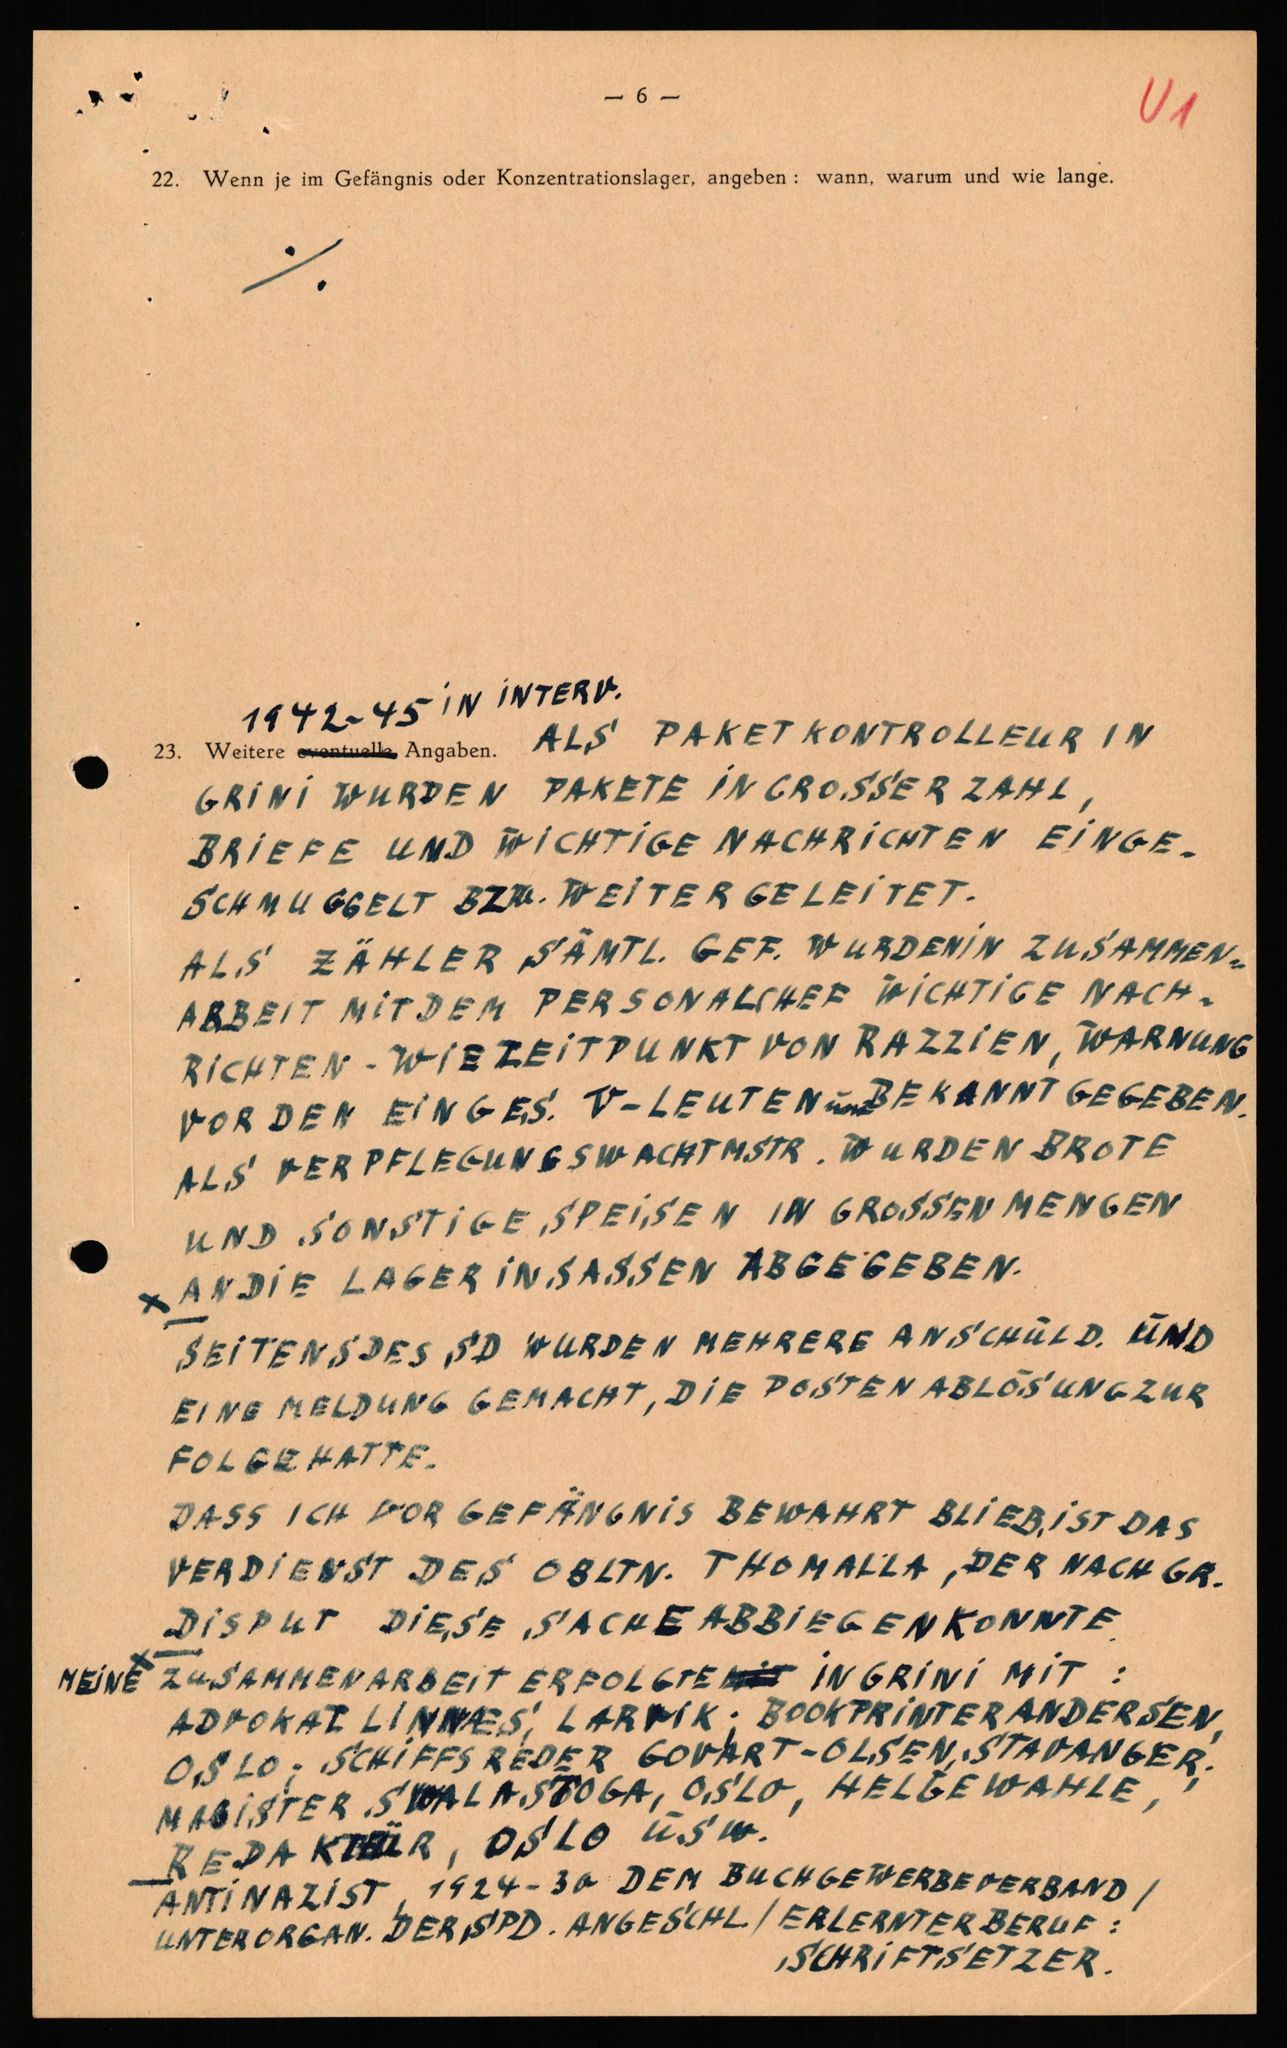 — 6 —
U1
22. Wenn je im Gefängnis oder Konzentrationslager, angeben: wann, warum und wie lange.
./.
1942-45 IN INTERV.
23. Weitere eventuelle Angaben. ALS PAKETKONTROLLEUR IN
GRINI WURDEN PAKETE IN GROSSER ZAHL,
BRIEFE UND WICHTIGE NACHRICHTEN EINGE-
SCHMUGGELT BZW. WEITERGELEITET.
ALS ZÄHLER SÄMTL. GEF. WURDEN IN ZUSAMMEN-
ARBEIT MIT DEM PERSONALCHEF WICHTIGE NACH-
RICHTEN - WIE ZEITPUNKT VON RAZZIEN, WARNUNG
VOR DEN EINGES. V-LEUTEN USW BEKANNTGEGEBEN.
ALS VERPFLEGUNGSWACHTMSTR. WURDEN BROTE
UND SONSTIGE SPEISEN IN GROSSEN MENGEN
x AN DIE LAGERINSASSEN ABGEGEBEN.
SEITENS DES SD WURDEN MEHRERE ANSCHULD. UND
EINE MELDUNG GEMACHT, DIE POSTENABLÖSUNG ZUR
FOLGE HATTE.
DASS ICH VOR GEFÄNGNIS BEWAHRT BLIEB, IST DAS
VERDIENST DES OBLTN. THOMALLA, DER NACH GR.
DISPUT DIESE SACHE ABBIEGEN KONNTE.
x MEINE ZUSAMMENARBEIT ERFOLGTE mit IN GRINI MIT:
ADVOKAT LINNAES, LARVIK; BOOKPRINTER ANDERSEN,
OSLO; SCHIFFSREDER GOVART-OLSEN, STAVANGER;
MAGISTER SWALASTOGA, OSLO, HELGE WAHLE,
REDAKTÖR, OSLO USW.
ANTINAZIST, 1924-30 DEM BUCHGEWERBEVERBAND /
UNTERORGAN. DER SPD. ANGESCHL / ERLERNTER BERUF:
SCHRIFTSETZER.